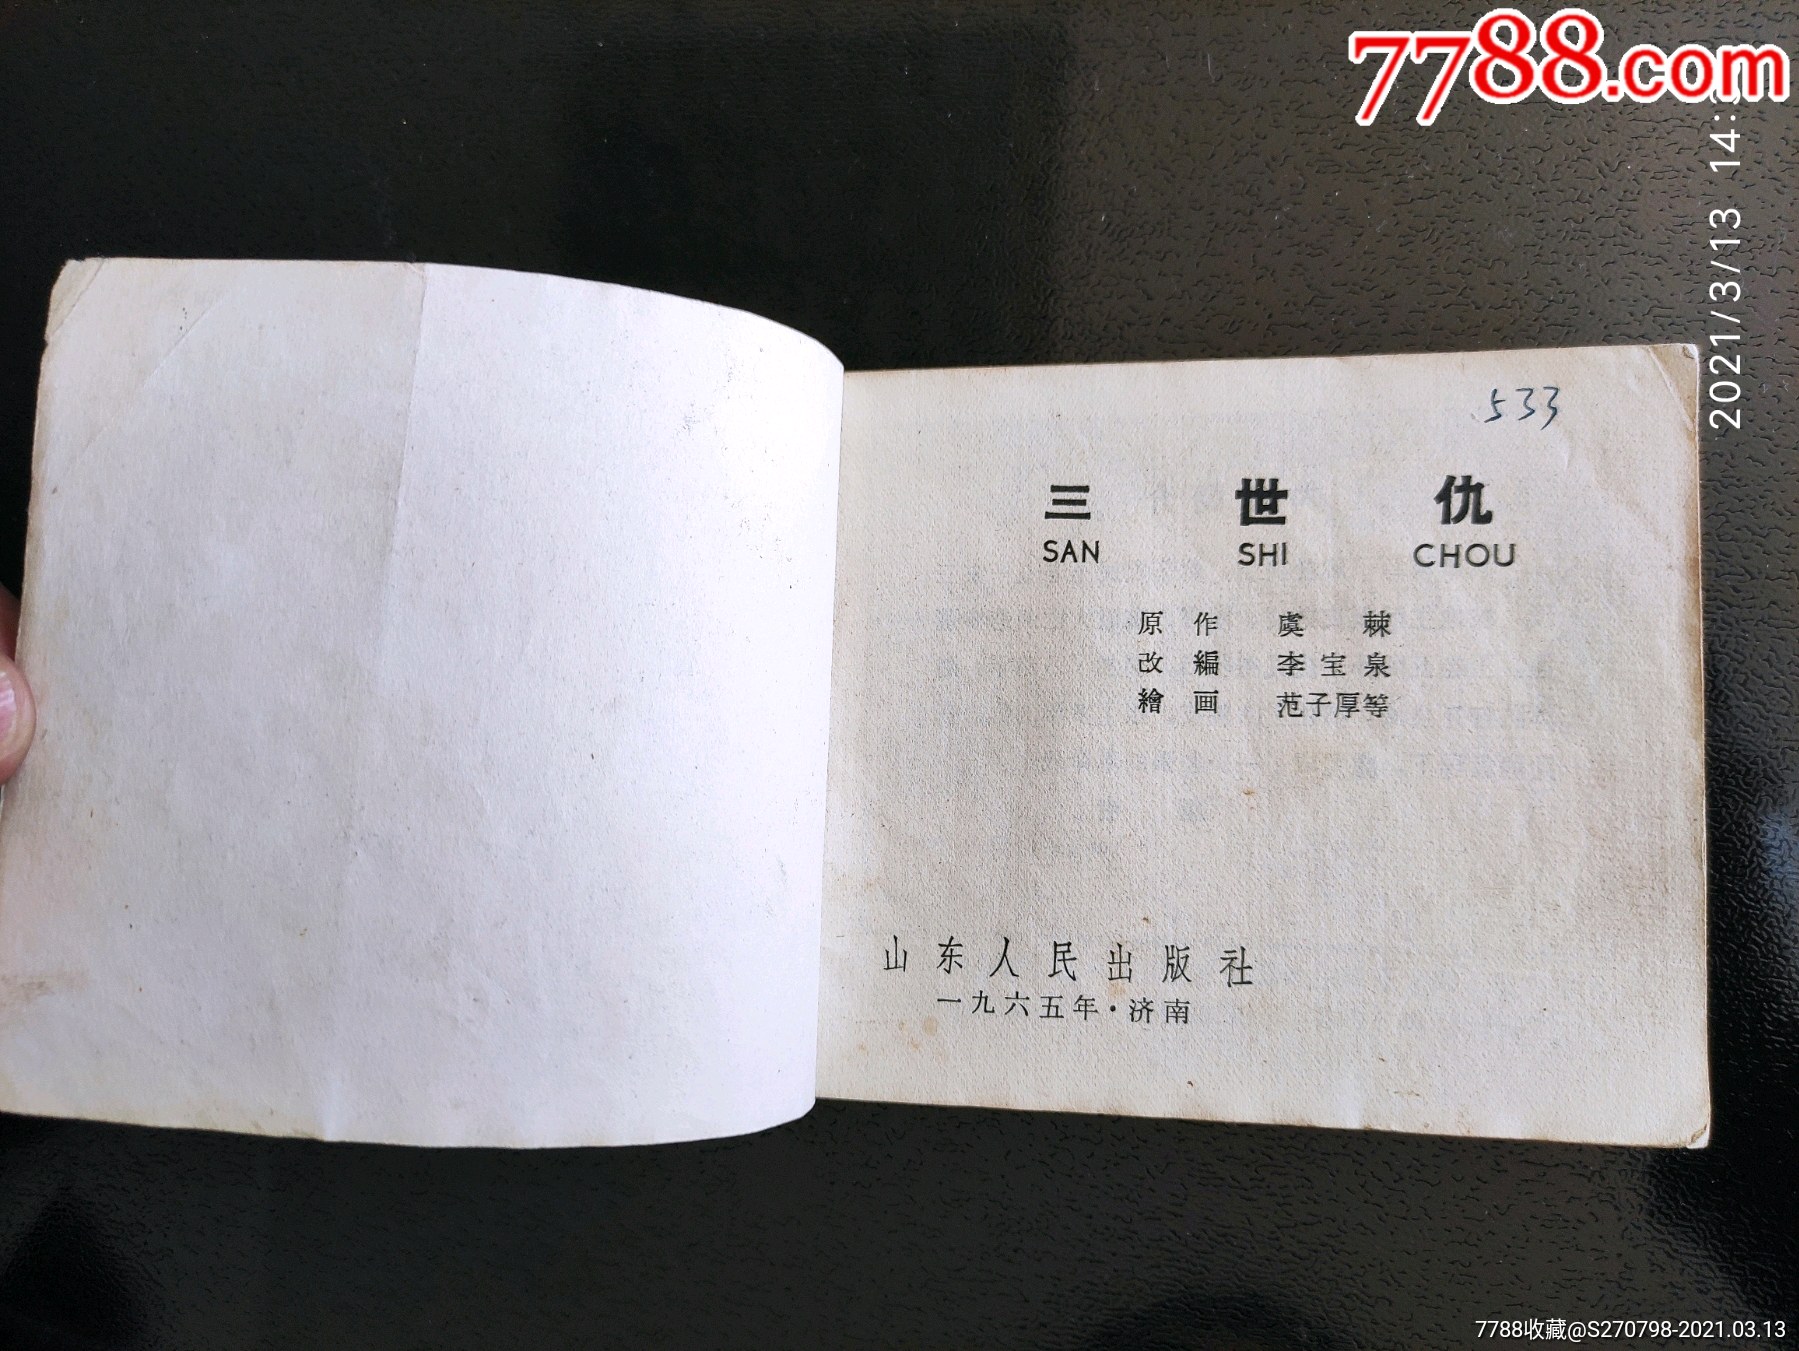 7788.com
2021/3/13 14:3
533
三 世 仇
SAN SHI CHOU
原 作 虞 棘
改 編 李 宝 泉
繪 画 范子厚等
山东人民出版社
一九六五年·济南
7788收藏@S270798-2021.03.13